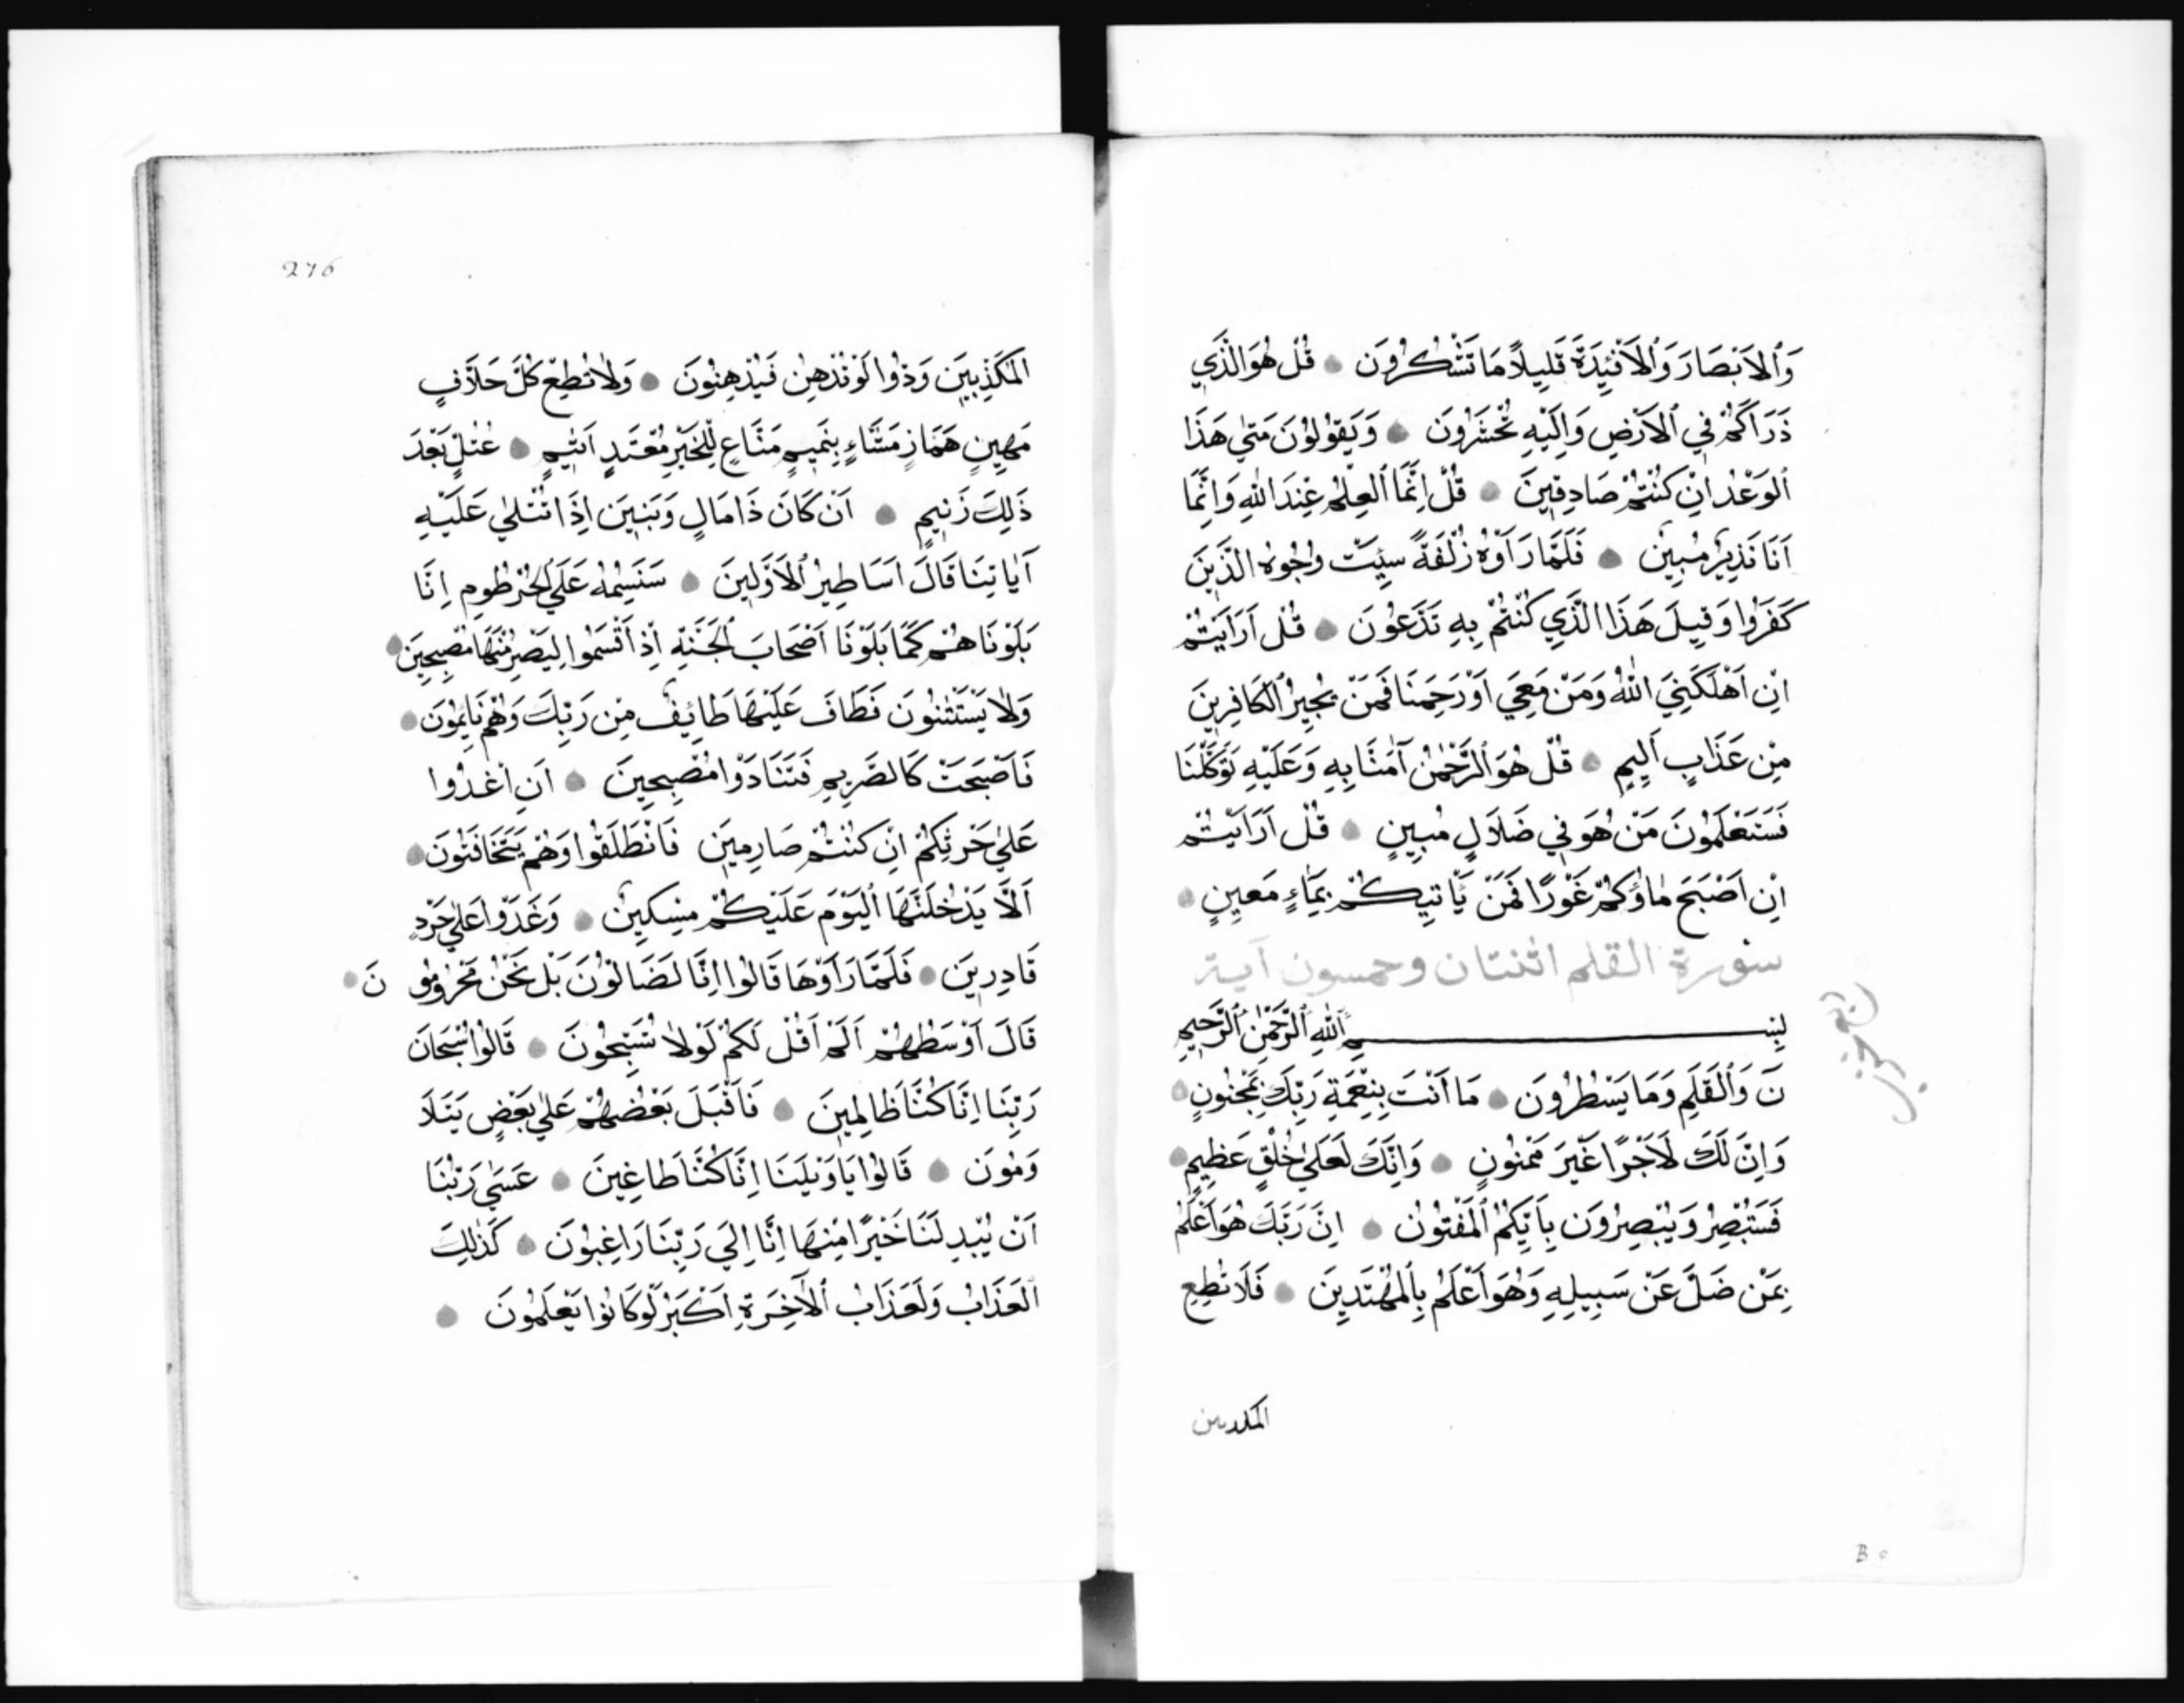 وَٱلاَبْصَارَ وَٱلاَفْئِدَةَ قَلِيلاً مَا تَشْكُرُونَ قُلْ هُوَ الَّذَي
ذَرَاَكُمْ فِي ٱلاَرْضِ وَاِلَيْهِ تُحْشَرُونَ وَيَقُولُونَ مَتٰي هَذَا
ٱلوَعْدُ اِنْ كُنْتُمْ صَادِقِينَ قُلْ اِنَّمَا ٱلعِلْمُ عِنْدَ اللهِ وَاِنَّمَا
اَنَا نَذِيرٌ مُبِينٌ فَلَمَّا رَاَوْهُ زُلْفَةً سِئِتْ وُجُوهُ الَّذَينَ
كَفَرُوا وَقِيلَ هَذَا الَّذَي كُنْتُمْ بِهِ تَدَّعُونَ قُلْ اَرَاَيْتُمْ
اِنْ اَهْلَكَنِيَ اللهُ وَمَنْ مَعِيَ اَوْ رَحِمَنَا فَمَنْ يُجِيرُ ٱلكَافِرِينَ
مِنْ عَذَابٍ اَلِيمٍ قُلْ هُوَ ٱلرَّحْمٰنُ آمَنَّا بِهِ وَعَلَيْهِ تَوَكَّلْنَا
فَسَتَعْلَمُونَ مَنْ هُوَ فِي ضَلاَلٍ مُبِينٍ قُلْ اَرَاَيْتُمْ
اِنْ اَصْبَحَ مَاؤُكُمْ غَوْرًا فَمَنْ يَّاتِيكُمْ بِمَاءٍ مَعِينٍ
سورة القلم اثنتان وخمسون آية
بِسْمِ ٱللهِ ٱلرَّحْمٰنِ ٱلرَّحِيمِ
نَ وَٱلقَلَمِ وَمَا يَسْطُرُونَ مَا اَنْتَ بِنِعْمَةِ رَبِّكَ بِمَجْنُونٍ
وَاِنَّ لَكَ لَاَجْرًا غَيْرَ مَمْنُونٍ وَاِنَّكَ لَعَلٰي خُلْقٍ عَظِيمٍ
فَسَتُبْصِرُ وَيُبْصِرُونَ بِاَيِّكُمُ ٱلمَفْتُونُ اِنَّ رَبَّكَ هُوَ اَعْلَمُ
بِمَنْ ضَلَّ عَنْ سَبِيلِهِ وَهُوَ اَعْلَمُ بِٱلمُهْتَدِينَ فَلَا تُطِعِ
المكذبين
B
276
المُكَذِّبِينَ وَدُّوا لَوْ تُدْهِنُ فَيُدْهِنُونَ وَلاَ تُطِعْ كُلَّ حَلاَّفٍ
مَهِينٍ هَمَّازٍ مَشَّاءٍ بِنَمِيمٍ مَنَّاعٍ لِّلْخَيْرِ مُعْتَدٍ اَثِيمٍ عُتُلٍّ بَعْدَ
ذَلِكَ زَنِيمٍ اَنْ كَانَ ذَا مَالٍ وَبَنِينَ اِذَا تُتْلٰي عَلَيْهِ
آيَاتِنَا قَالَ اَسَاطِيرُ ٱلاَوَّلِينَ سَنَسِمُهُ عَلَي ٱلخُرْطُومِ اِنَّا
بَلَوْنَاهُمْ كَمَا بَلَوْنَا اَصْحَابَ ٱلجَنَّةِ اِذْ اَقْسَمُوا لَيَصْرِمُنَّهَا مُصْبِحِينَ
وَلاَ يَسْتَثْنُونَ فَطَافَ عَلَيْهَا طَائِفٌ مِنْ رَبِّكَ وَهُمْ نَائِمُونَ
فَاَصْبَحَتْ كَالصَّرِيمِ فَتَنَادَوْا مُصْبِحِينَ اَنِ اغْدُوا
عَلٰي حَرْثِكُمْ اِنْ كُنْتُمْ صَارِمِينَ فَانْطَلَقُوا وَهُمْ يَتَخَافَتُونَ
اَلاَّ يَدْخُلَنَّهَا ٱليَوْمَ عَلَيْكُمْ مِسْكِينٌ وَغَدَوْا عَلٰي حَرْدٍ
قَادِرِينَ فَلَمَّا رَاَوْهَا قَالُوا اِنَّا لَضَالُّونَ بَلْ نَحْنُ مَحْرُومُو نَ
قَالَ اَوْسَطُهُمْ اَلَمْ اَقُلْ لَكُمْ لَوْلاَ تُسَبِّحُونَ قَالُوا سُبْحَانَ
رَبِّنَا اِنَّا كُنَّا ظَالِمِينَ فَاَقْبَلَ بَعْضُهُمْ عَلٰي بَعْضٍ يَتَلاَ
وَمُونَ قَالُوا يَا وَيْلَنَا اِنَّا كُنَّا طَاغِينَ عَسَي رَبُّنَا
اَنْ يُبْدِلَنَا خَيْرًا مِنْهَا اِنَّا اِلَي رَبِّنَا رَاغِبُونَ كَذَلِكَ
ٱلعَذَابُ وَلَعَذَابُ ٱلآخِرَةِ اَكْبَرُ لَوْ كَانُوا يَعْلَمُونَ